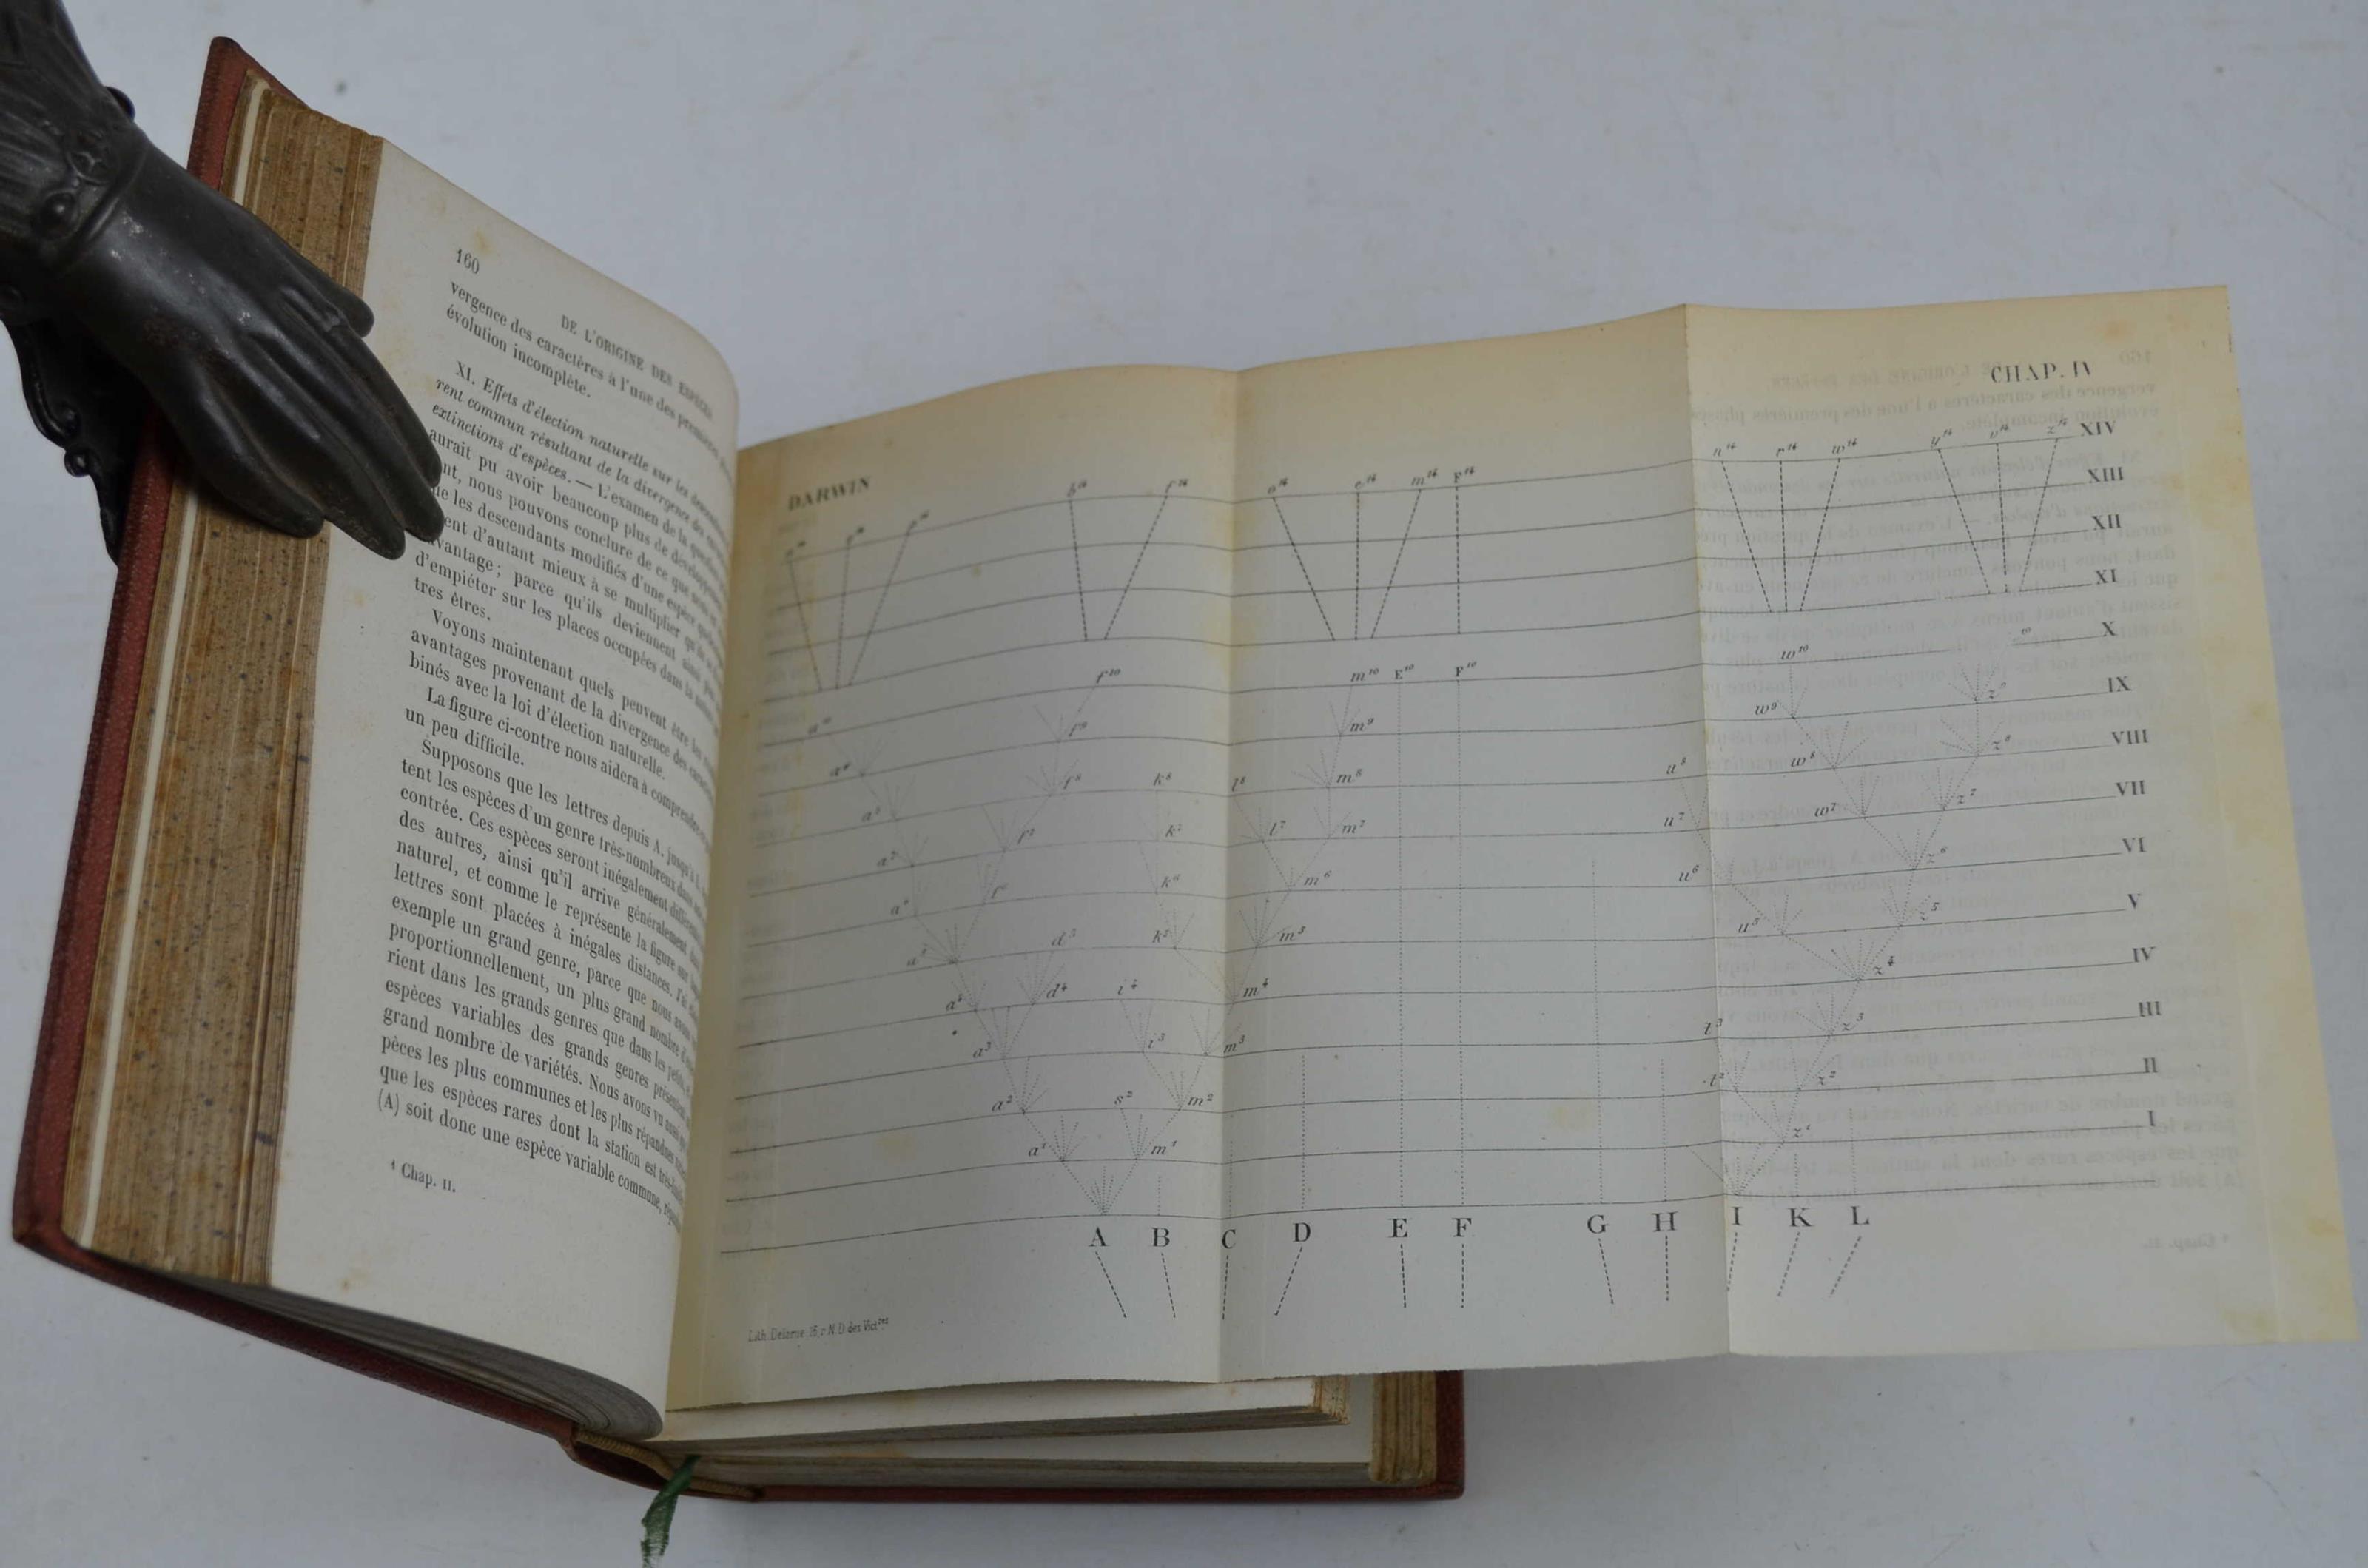 160
DE L'ORIGINE DES ESPÈCES
vergence des caractères à l'une des premières
évolution incomplète.
XI. Effets d'élection naturelle sur les descendants
rent commun résultant de la divergence des
extinctions d'espèces. — L'examen de la question
aurait pu avoir beaucoup plus de développement
nt, nous pouvons conclure de ce que nous
les descendants modifiés d'une espèce
ent d'autant mieux à se multiplier qu'ils
avantage; parce qu'ils deviennent ainsi
d'empiéter sur les places occupées dans la nature
tres êtres.
Voyons maintenant quels peuvent être les
avantages provenant de la divergence des caractères
binés avec la loi d'élection naturelle.
La figure ci-contre nous aidera à comprendre
un peu difficile.
Supposons que les lettres depuis A. jusqu'à L.
tent les espèces d'un genre très-nombreux dans
contrée. Ces espèces seront inégalement différentes
des autres, ainsi qu'il arrive généralement dans
naturel, et comme le représente la figure
lettres sont placées à inégales distances. J'ai
exemple un grand genre, parce que nous avons
proportionnellement, un plus grand nombre d'espèces
rient dans les grands genres que dans les petits,
espèces variables des grands genres présentent
grand nombre de variétés. Nous avons vu aussi
pèces les plus communes et les plus répandues
que les espèces rares dont la station est
(A) soit donc une espèce variable commune,
¹ Chap. II.
DARWIN
CHAP. IV
a¹⁴ q¹⁴ p¹⁴ b¹⁴ f¹⁴ o¹⁴ e¹⁴ m¹⁴ F¹⁴ n¹⁴ r¹⁴ w¹⁴ y¹⁴ v¹⁴ z¹⁴ XIV
XIII
XII
XI
a¹⁰ f¹⁰ m¹⁰ E¹⁰ F¹⁰ w¹⁰ z¹⁰ X
a⁹ f⁹ m⁹ w⁹ z⁹ IX
a⁸ f⁸ k⁸ l⁸ m⁸ u⁸ w⁸ z⁸ VIII
a⁷ f⁷ k⁷ l⁷ m⁷ u⁷ w⁷ z⁷ VII
a⁶ f⁶ k⁶ m⁶ u⁶ z⁶ VI
a⁵ d⁵ k⁵ m⁵ u⁵ z⁵ V
a⁴ d⁴ i⁴ m⁴ z⁴ IV
a³ i³ m³ t³ z³ III
a² s² m² t² z² II
a¹ m¹ z¹ I
A B C D E F G H I K L
Lith. Delarue, 16, r. N. D. des Vict.res